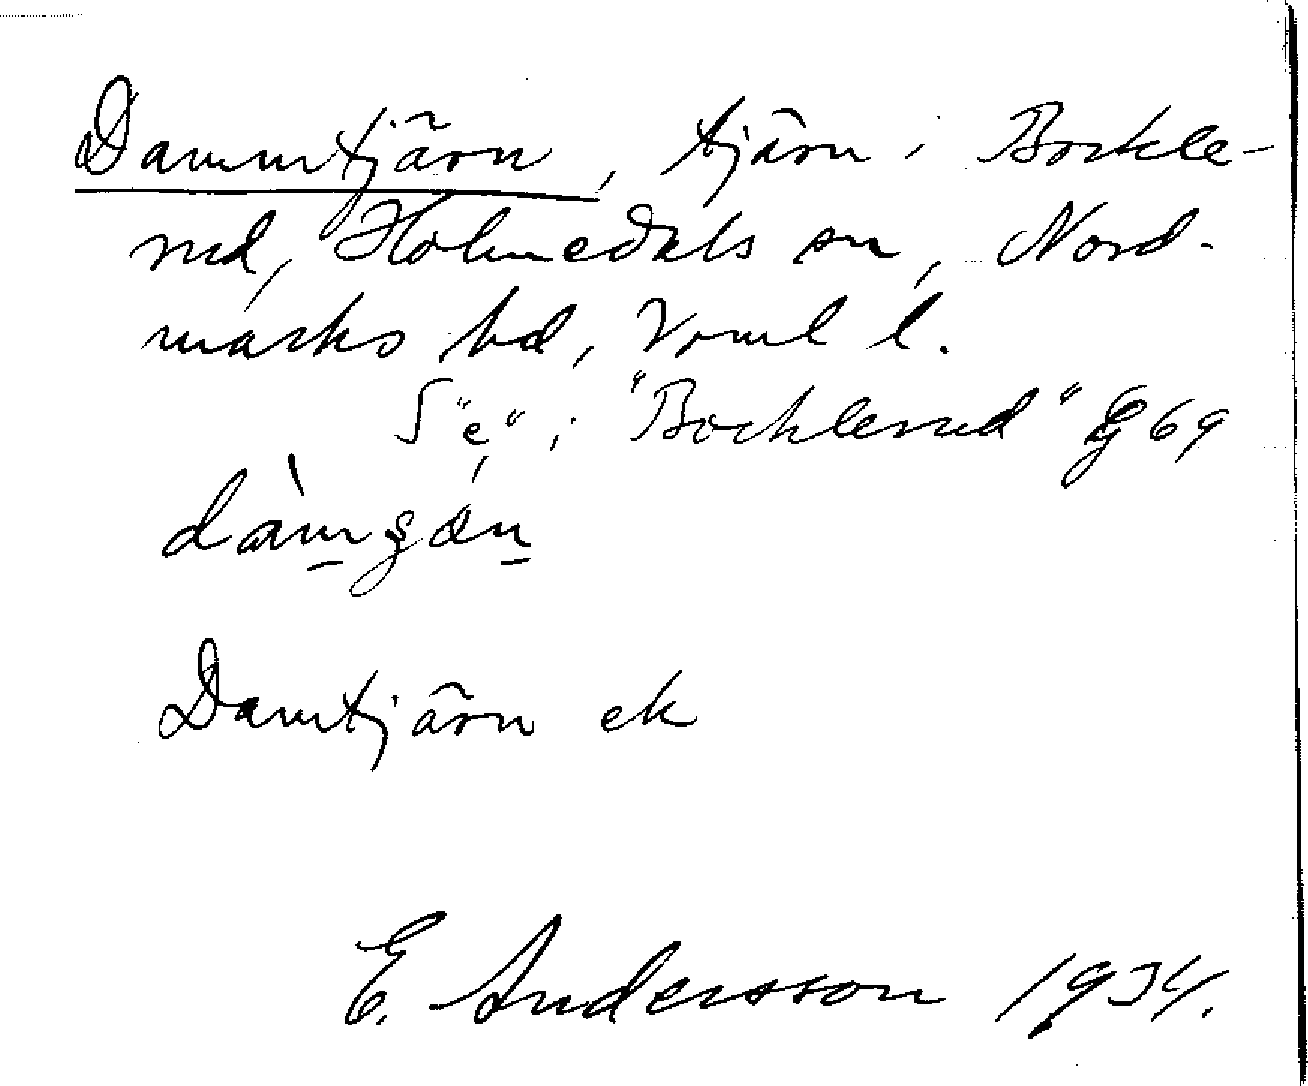 Dammtjärn, tjärn i Bockle-
rud, Holmedals sn, Nord-
marks hd, Vrml l.
S "e" i "Bocklerud" Eg 69
dàmʂæn
Damtjärn ek
E. Andersson 1934.